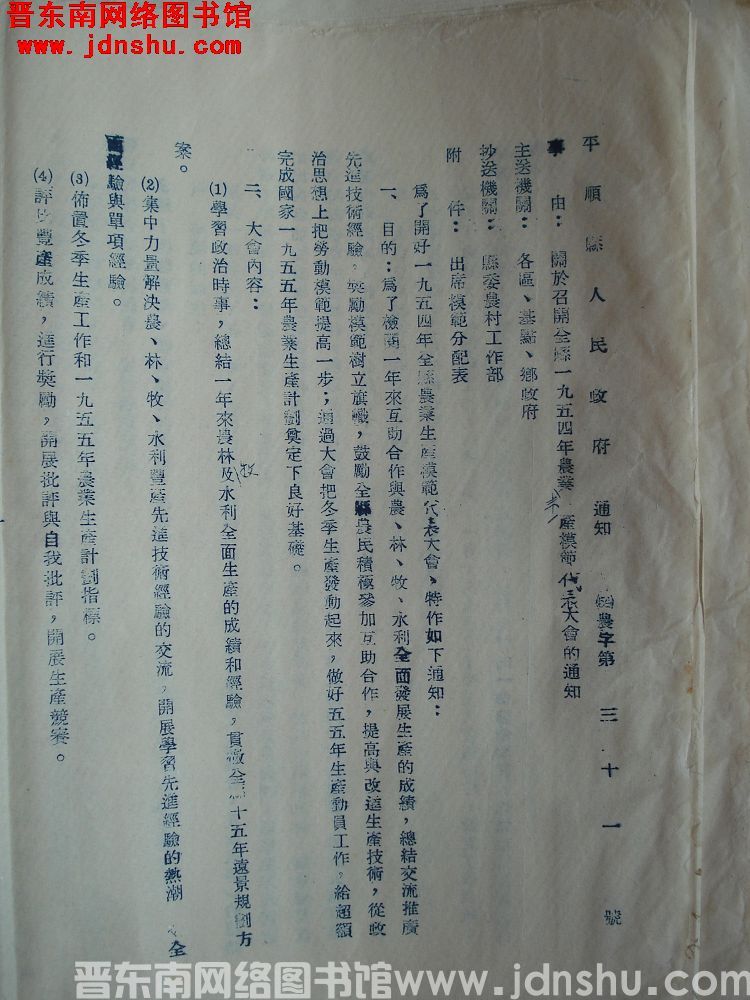 晋东南网络图书馆
www.jdnshu.com
平順縣人民政府 通知 農字第三十一號
事由：關於召開全縣一九五四年農業產模範代表大會的通知
主送機關：各區、基點、鄉政府
抄送機關：縣委農村工作部
附件：出席模範分配表
為了開好一九五四年全縣農業生產模範代表大會、特作如下通知：
一、目的：爲了檢閱一年來互助合作與農、林、牧、水利全面發展生產的成績，總結交流推廣
先進技術經驗，獎勵模範樹立旗幟，鼓勵全縣農民積極參加互助合作，提高與改進生產技術，從政
治思想上把勞動模範提高一步；通過大會把冬季生產發動起來，做好五五年生產動員工作，給超額
完成國家一九五五年農業生產計劃奠定下良好基礎。
二、大會內容：
(1)學習政治時事，總結一年來農林及牧水利全面生產的成績和經驗，貫徹全十五年遠景規劃方
案。
(2)集中力量解決農、林、牧、水利豐產先進技術經驗的交流，開展學習先進經驗的熱潮 全
面經驗與單項經驗。
(3)佈置冬季生產工作和一九五五年農業生產計劃指標。
(4)評比豐產成績，進行獎勵，開展批評與自我批評，開展生產競賽。
晋东南网络图书馆www.jdnshu.com